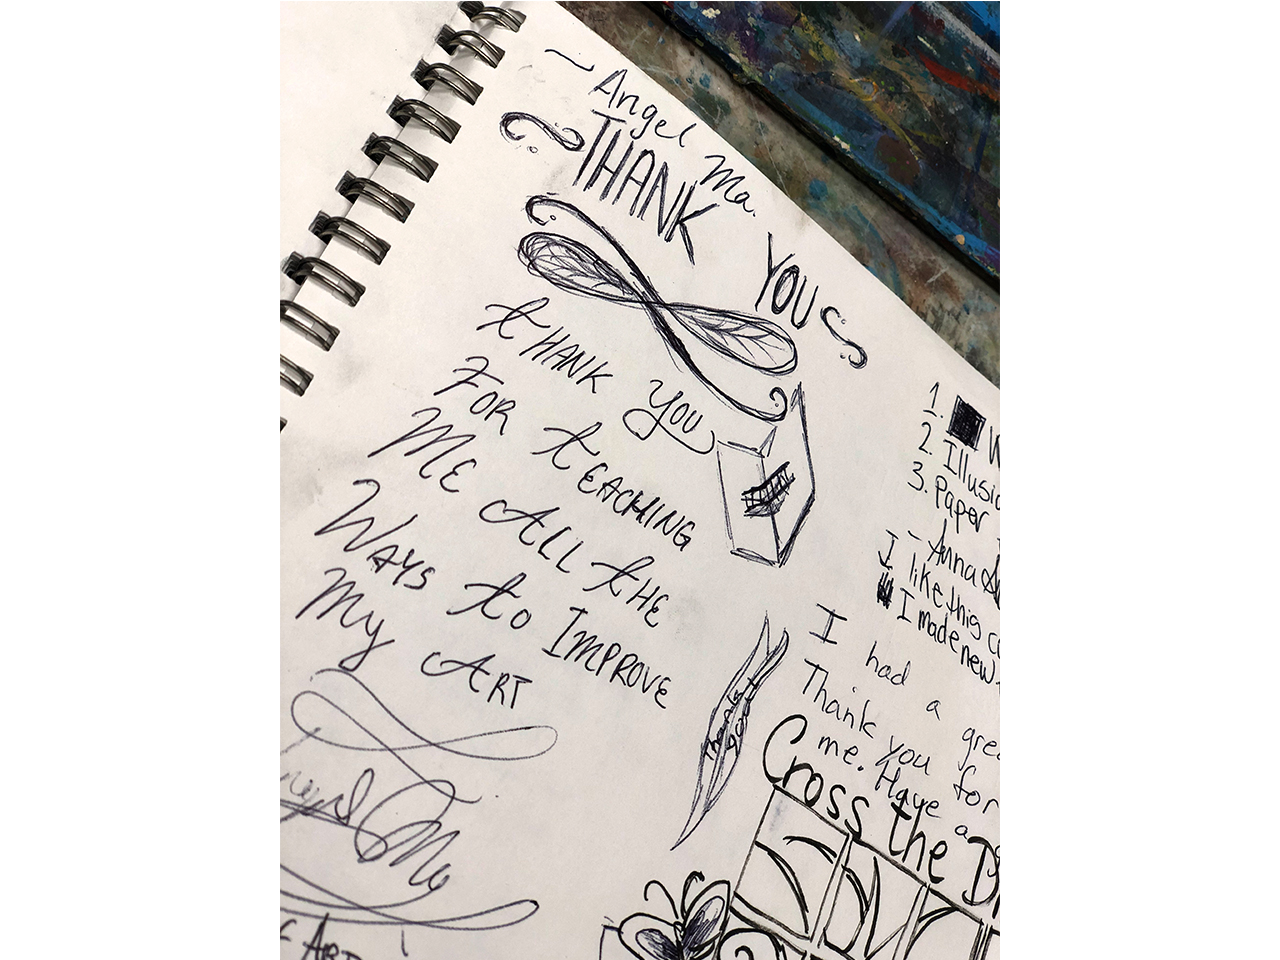 ~ Angel Ma.
THANK YOU
THANK YOU
FOR TEACHING
ME ALL THE
WAYS to IMPROVE
My ART
Thanks
1. W
2. Illusi
3. Paper
- Anna
I like this c
I made new
I had a grea
Thank you for
me. Have a
Cross the D
ART